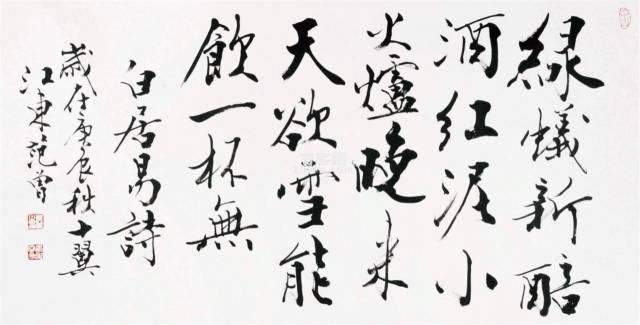 綠蟻新醅
酒紅泥小
火爐晚来
天欲雪能
飲一杯無
白居易詩
歲在庚辰秩十翼
江東范曾